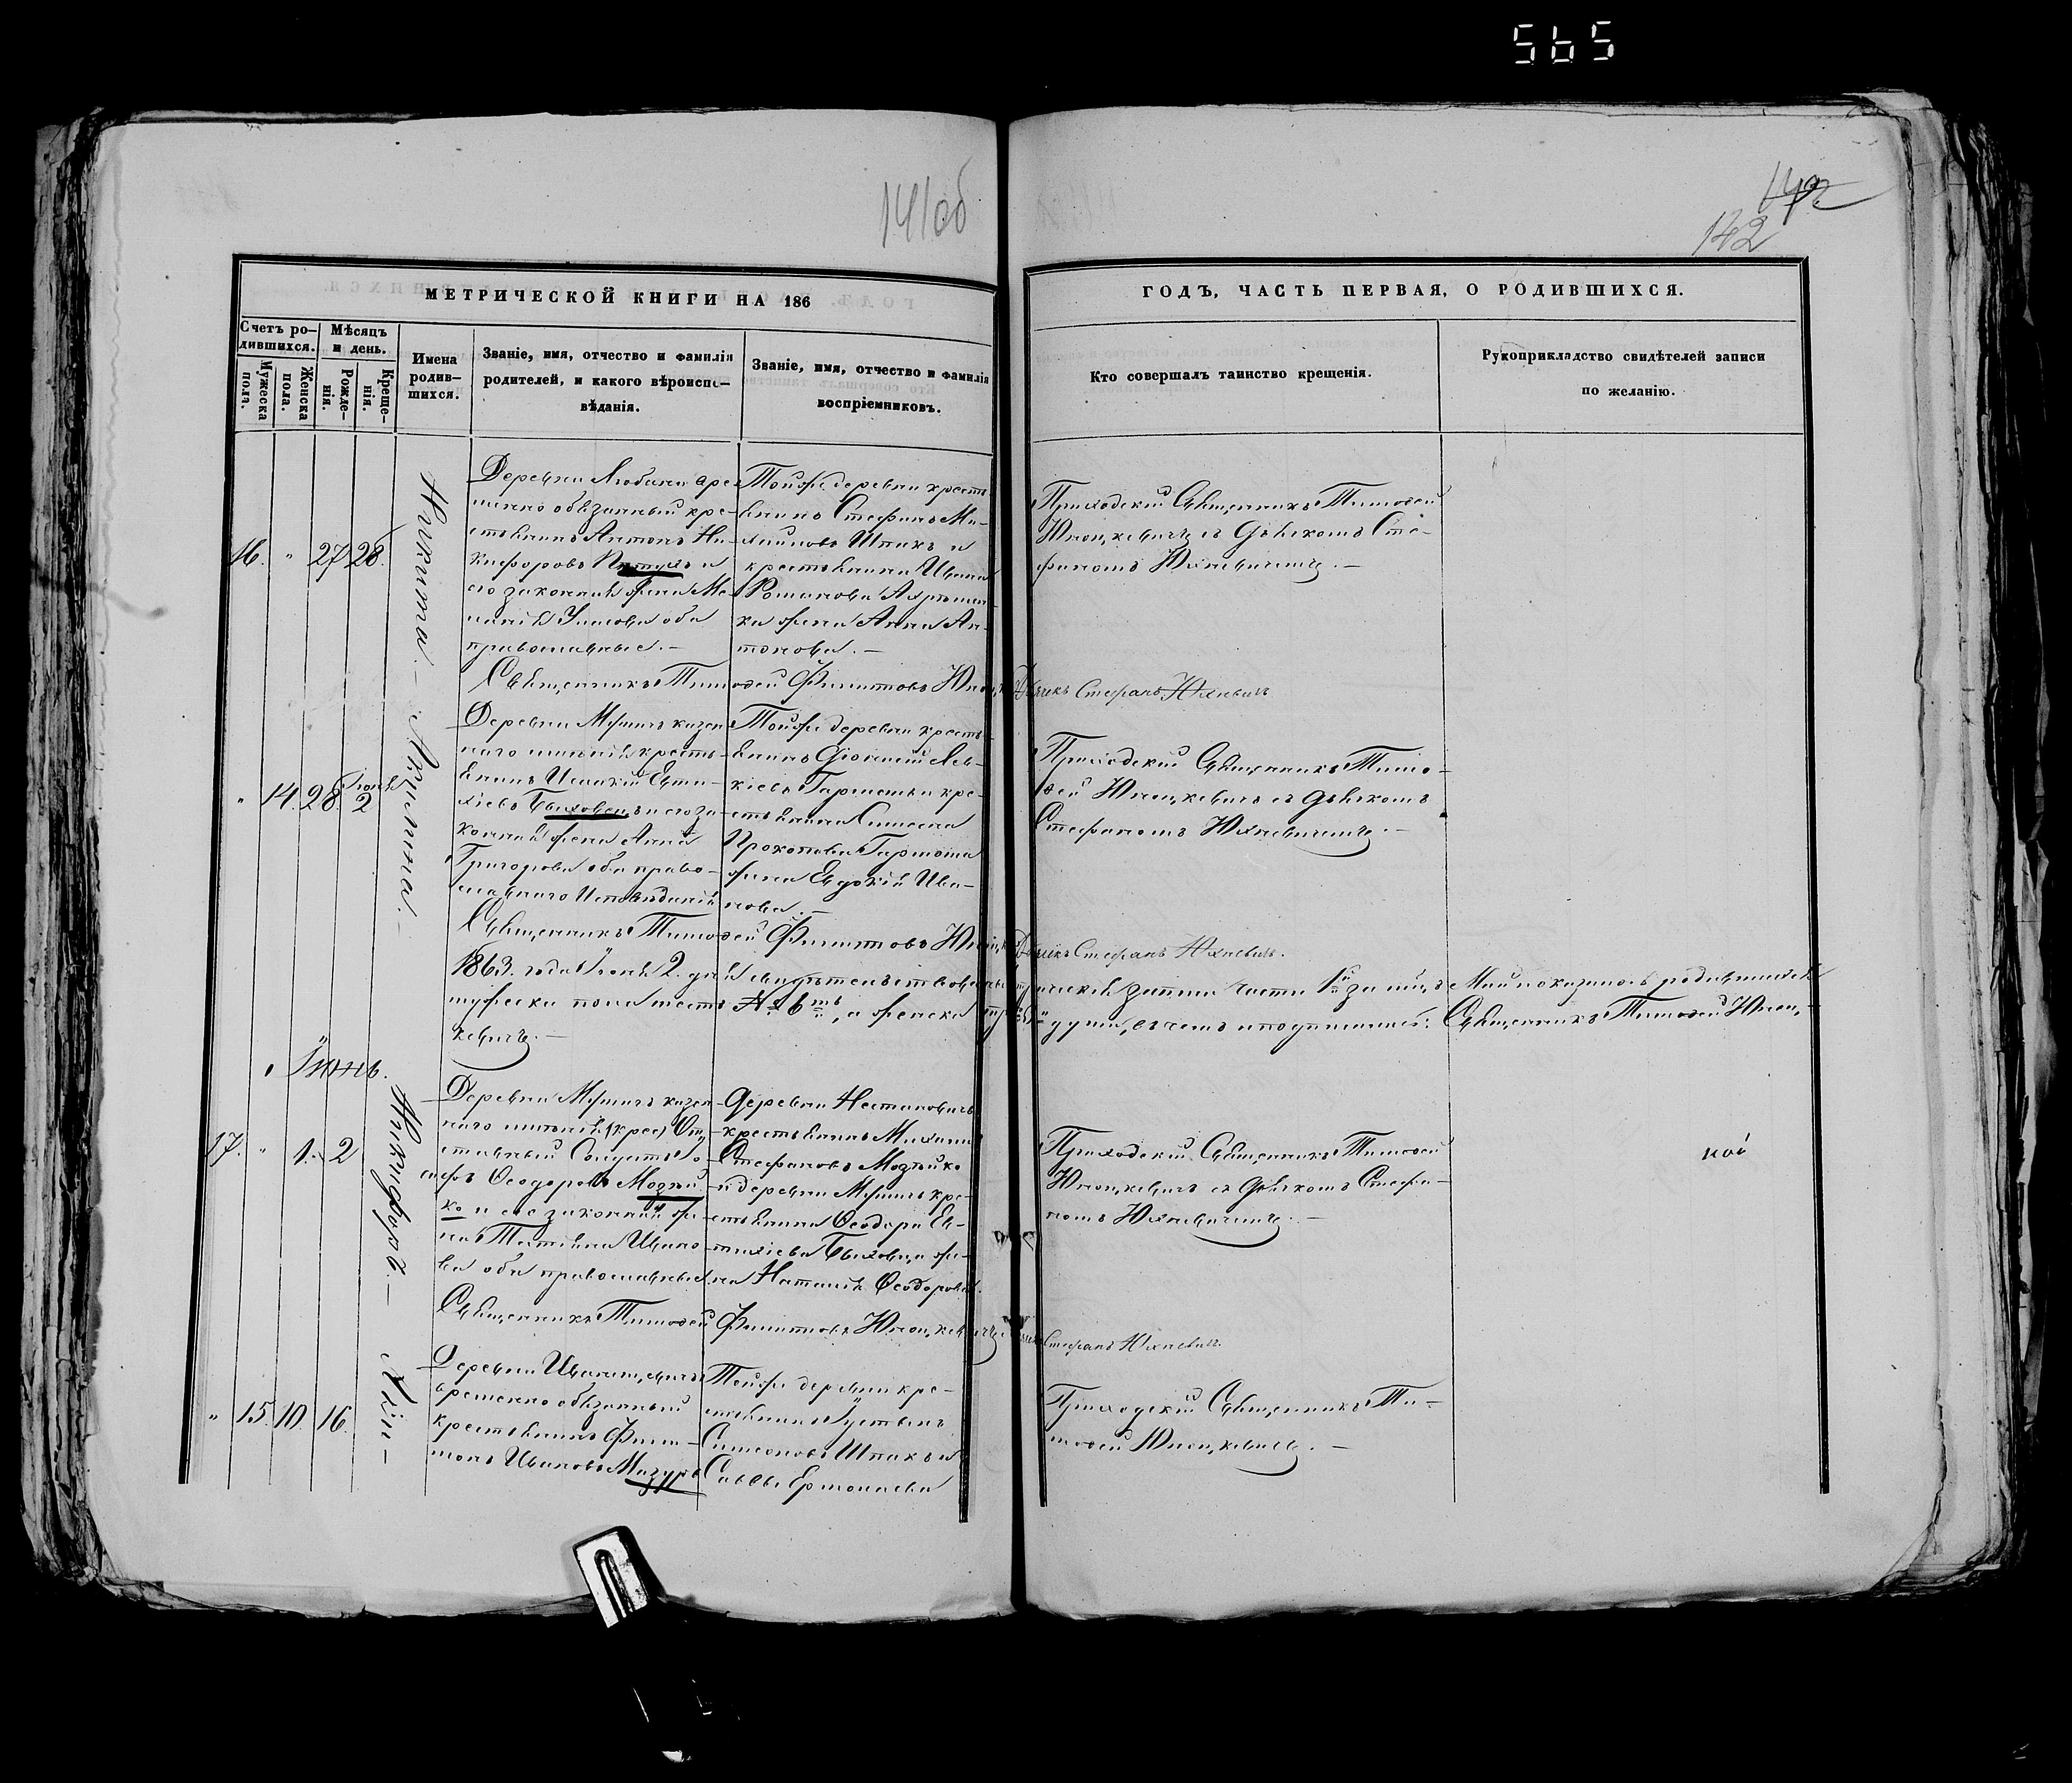 565
141об
142
142
МЕТРИЧЕСКОЙ КНИГИ НА 186
ГОДЪ, ЧАСТЬ ПЕРВАЯ, О РОДИВШИХСЯ.
Счетъ ро-
дившихся.
Мужеска
пола.
Женска
пола.
Мѣсяцъ
и день.
Рожде-
нія.
Креще-
нія.
Имена
родив-
шихся.
Званіе, имя, отчество и фамилія
родителей, и какого вѣроиспо-
вѣданія.
Званіе, имя, отчество и фамилія
воспріемниковъ.
Кто совершалъ таинство крещенія.
Рукоприкладство свидѣтелей записи
по желанію.
16. " 27 28.
Никита. —
Деревни
менно обязанный кре-
стьянинъ Антонъ Ни-
кифоровъ и
его законная жена Ме-
оба
православные. —
Тойже деревни кресть-
янинъ Стефанъ Ми-
хайловъ Шпакъ и
крестьянина Ивана
Романова
жена Анна Ан-
тонова. —
Приходскій Священникъ Тимоѳей
Юноцкевичъ съ дьячкомъ Сте-
фаномъ Юхневичемъ. —
Священникъ Тимоѳей Филиповъ
Дьячекъ Стефанъ Юхневичъ
" 14. 28. Іюня 2
Акилина. —
Деревни казен-
наго имѣнія кресть-
янинъ Евти-
хіевъ Быховецъ и его за-
конная жена Анна
Григорова оба право-
славнаго Исповѣданія
Тойже деревни кресть-
янинъ
кіевъ и кре-
стьянина Симеона
Прокопова
жена Евдокія Ива-
нова. —
Приходскій Священникъ Тимо-
ѳей Юноцкевичъ съ дьячкомъ
Стефаномъ Юхневичемъ. —
Священникъ Тимоѳей Филиповъ
Дьячекъ Стефанъ Юхневичъ.
1863. года Іюня 2. дня свидѣтельствована записи части 1й за мѣс. Май и оказалось родившихся
мужеска пола шесть № 6ть, а женска души, въ чемъ и подписался: Священникъ Тимоѳей Юноц-
кевичъ. —
Іюнь.
17. " 1. 2
Никифоръ. —
Деревни казен-
наго имѣнія (крес) От-
ставный Солдатъ Іо-
сифъ Ѳеодоровъ Мозай-
ко и его законная же-
на Татьяна Ивано-
ва оба православные
Деревни
крестьянинъ Михаилъ
Стефановъ Мозайко
и деревни кре-
стьянина Ѳеодора Ев-
тихіева Быховца же-
на Наталія Ѳеодорова.
Приходскій Священникъ Тимоѳей
Юноцкевичъ съ дьячкомъ Стефа-
номъ Юхневичемъ. —
Священникъ Тимоѳей Филиповъ Юноцкевичъ
Стефанъ Юхневичъ.
" 15. 10. 16.
Деревни
временно обязанный
крестьянинъ Фили-
монъ Ивановъ Мазуръ
Тойже деревни кре-
стьянинъ Іустинъ
Симеоновъ Шпакъ и
Саввы
Приходскій Священникъ Ти-
моѳей Юноцкевичъ. —